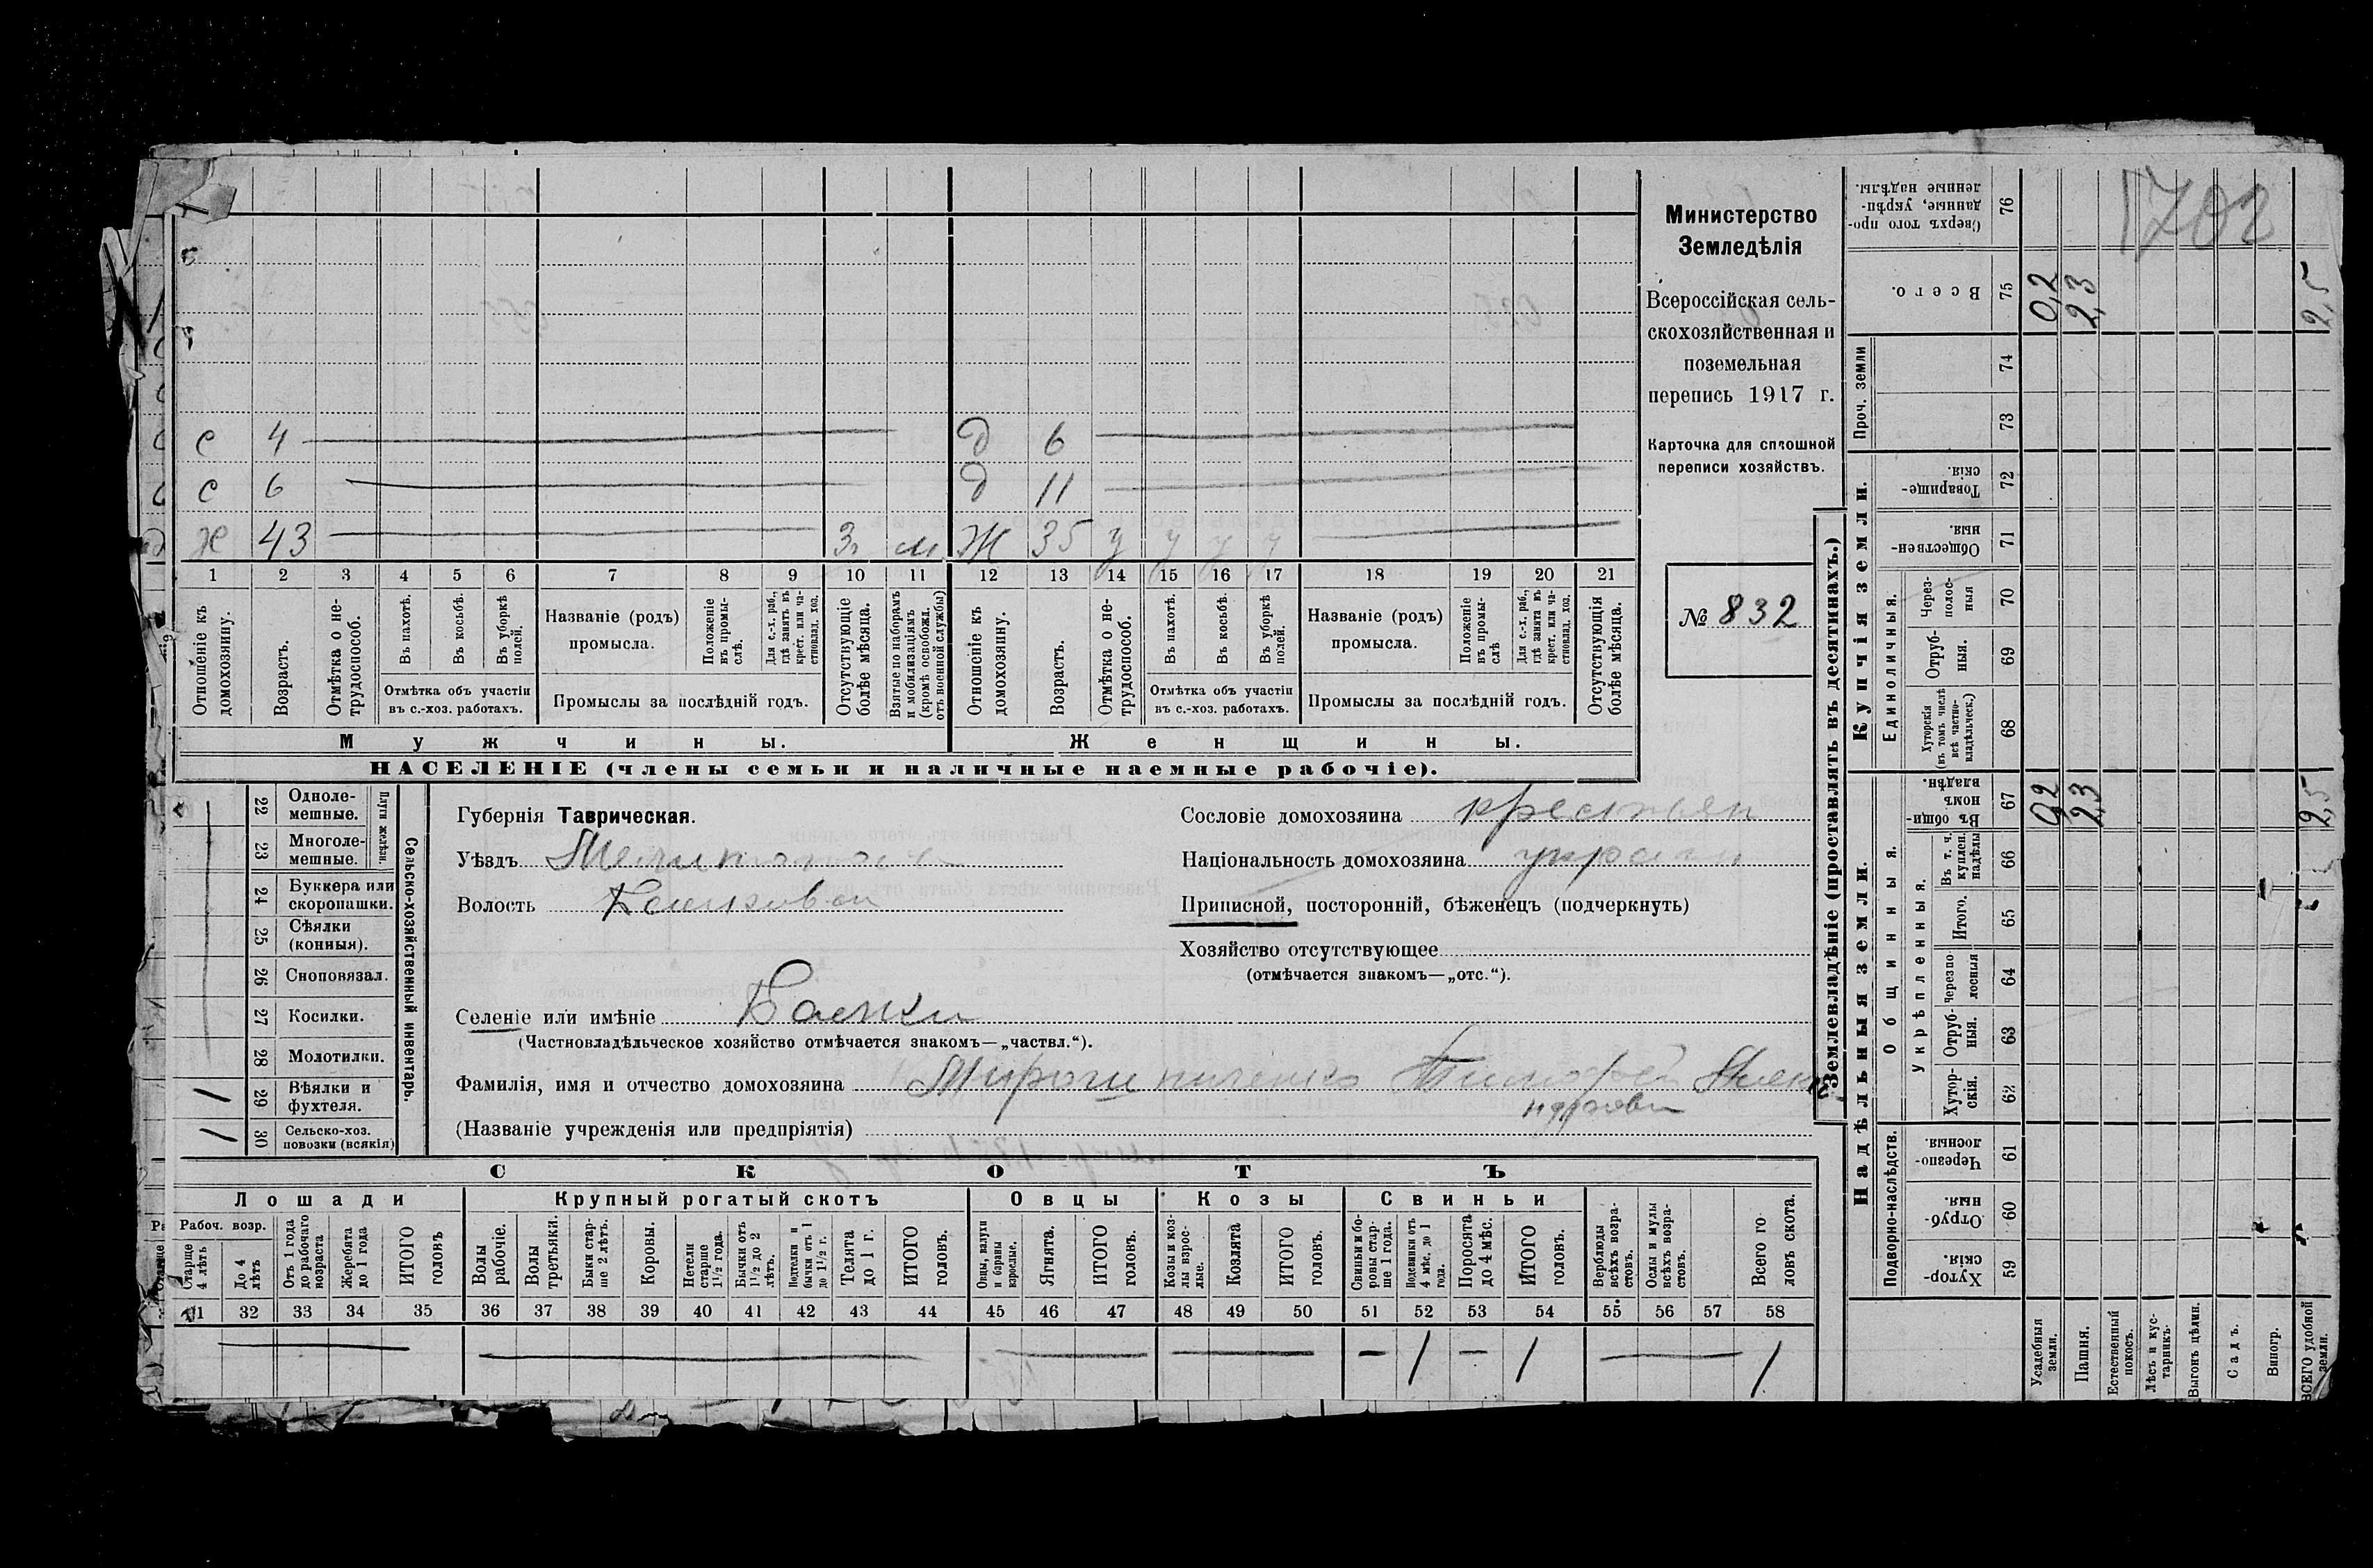 1702
Министерство
Земледѣлія
Всероссійская сель-
скохозяйственная и
поземельная
перепись 1917 г.
Карточка для сплошной
переписи хозяйствъ.
№ 832
с 4 д 6
с 6 д 11
х 43 3 м ж 35 у у у у
1 2 3 4 5 6 7 8 9 10 11 12 13 14 15 16 17 18 19 20 21
Отношеніе къ домохозяину.
Возрастъ.
Отмѣтка о не-трудоспособ.
Въ пахотѣ.
Въ косьбѣ.
Въ уборкѣ полей.
Отмѣтка объ участіи
въ с.-хоз. работахъ.
Названіе (родъ)
промысла.
Положеніе въ промы-слѣ.
Для с.-х. раб., гдѣ занятъ въ крест. или ча-стновлад. хоз.
Промыслы за послѣдній годъ.
Отсутствующіе болѣе мѣсяца.
Взятые по наборамъ и мобилизаціямъ (кромѣ освобожд. отъ военной службы)
Отношеніе къ домохозяину.
Возрастъ.
Отмѣтка о не-трудоспособ.
Въ пахотѣ.
Въ косьбѣ.
Въ уборкѣ полей.
Отмѣтка объ участіи
въ с.-хоз. работахъ.
Названіе (родъ)
промысла.
Положеніе въ промы-слѣ
Для с.-х. раб., гдѣ занята въ крест. или ча-стновлад. хоз.
Промыслы за послѣдній годъ.
Отсутствующія болѣе мѣсяца.
Мужчины. Женщины.
НАСЕЛЕНІЕ (члены семьи и наличные наемные рабочіе).
Сельско-хозяйственный инвентарь.
Плуги желѣзн.
22 Одноле-мешные.
23 Многоле-мешные.
24 Буккера или скоропашки.
25 Сѣялки (конныя).
26 Сноповязал.
27 Косилки.
28 Молотилки.
29 Вѣялки и фухтеля. 1
30 Сельско-хоз. повозки (всякія) 1
Губернія Таврическая.
Уѣздъ
Волость
Сословіе домохозяина крестьян
Національность домохозяина украин
Приписной, посторонній, бѣженецъ (подчеркнуть)
Хозяйство отсутствующее
(отмѣчается знакомъ—„отс.“).
Селеніе или имѣніе Балки
(Частновладѣльческое хозяйство отмѣчается знакомъ—„частвл.“).
Фамилія, имя и отчество домохозяина Мирошниченко Тимофей
(Названіе учрежденія или предпріятія)
СКОТЪ
Лошади Крупный рогатый скотъ Овцы Козы Свиньи
Рабоч. возр.
Старше 4 лѣтъ
До 4 лѣтъ
Отъ 1 года до рабочаго возраста
Жеребята до 1 года
ИТОГО головъ
Волы рабочіе.
Волы третьяки.
Быки стар-ше 2 лѣтъ.
Коровы.
Нетели старше 1½ года.
Бычки отъ 1½ до 2 лѣтъ.
Подтелки и бычки отъ 1 до 1½ г.
Телята до 1 г.
ИТОГО головъ.
Овцы, валухи и бараны взрослые.
Ягнята.
ИТОГО головъ.
Козы и коз-лы взрос-лые.
Козлята
ИТОГО головъ.
Свиньи и бо-ровы стар-ше 1 года.
Подсвинки отъ 4 мѣс. до 1 года.
Поросята до 4 мѣс.
ИТОГО головъ.
Верблюды всѣхъ возра-стовъ.
Ослы и мулы всѣхъ возра-стовъ.
Всего го-ловъ скота.
31 32 33 34 35 36 37 38 39 40 41 42 43 44 45 46 47 48 49 50 51 52 53 54 55 56 57 58
— — — — — 1 — 1 — 1
Землевладѣніе (проставлять въ десятинахъ.)
Надѣльныя земли. Купчія земли. Проч. земли
Подворно-наслѣдств.
Общинныя.
Укрѣпленныя.
Единоличныя.
59 Хутор-скія.
60 Отруб-ныя.
61 Черезпо-лосныя.
62 Хутор-скія.
63 Отруб-ныя.
64 Черезпо-лосныя
65 Итого.
66 Въ т. ч. куплен. надѣлы
67 Въ общин-номъ владѣн.
68 Хуторскія (въ томъ числѣ всѣ частно-владѣльческ.)
69 Отруб-ныя.
70 Через-полос-ныя
71 Обществен-ныя.
72 Товарище-скія.
73
74
75 Всего.
76 Сверхъ того про-данные, укрѣп-ленные надѣлы.
Усадебныя земли. 0,2 0,2
Пашня. 2,3 2,3
Естественный покосъ.
Лѣсъ и кус-тарникъ.
Выгонъ цѣлин.
Садъ.
Виногр.
ВСЕГО удобной земли. 2,5 2,5